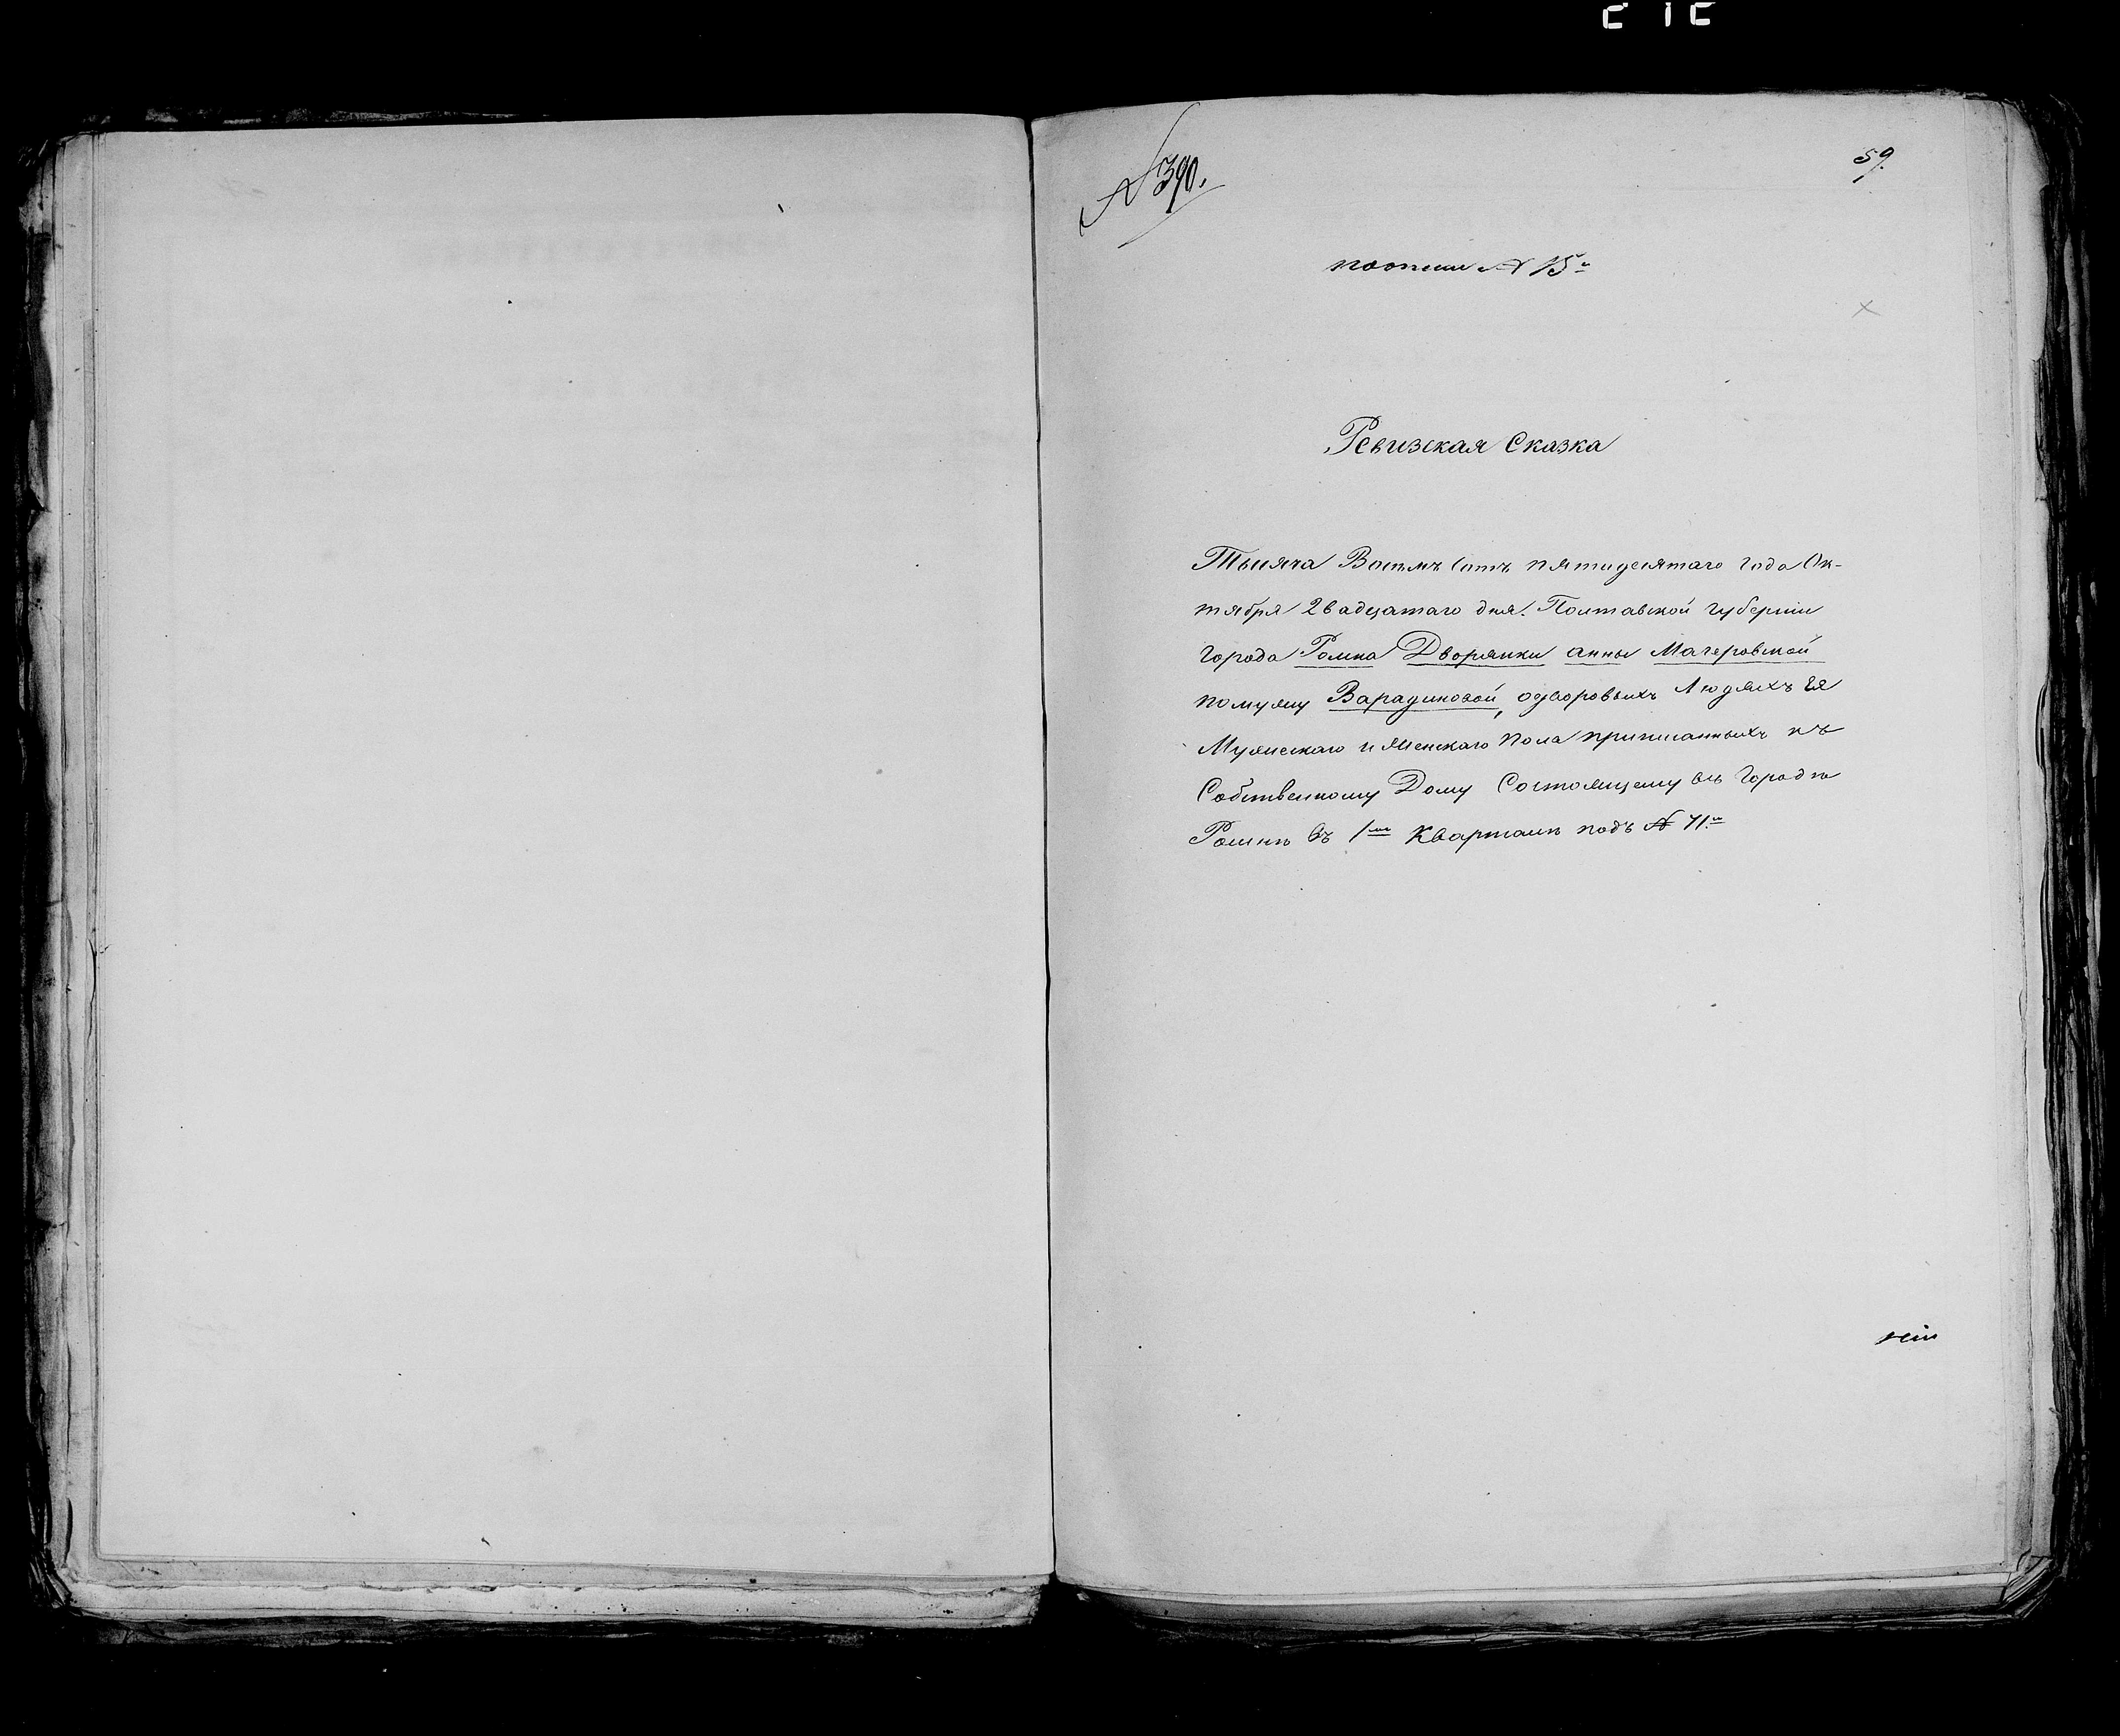 № 390.
59.
по описи № 15й
Ревизская Сказка
Тысяча Восемъ сотъ пятидесятаго года Ок-
тября двадцатаго дня. Полтавской губернии
города Ромна Дворянки анны Магеровской
помужу Варадиновой, одворовыхъ Людяхъ Ея
Мужескаго и женскаго пола приписанныхъ къ
Собственному Дому Состоящему въ Городѣ
Ромнѣ въ 1м Кварталѣ подъ № 71.м